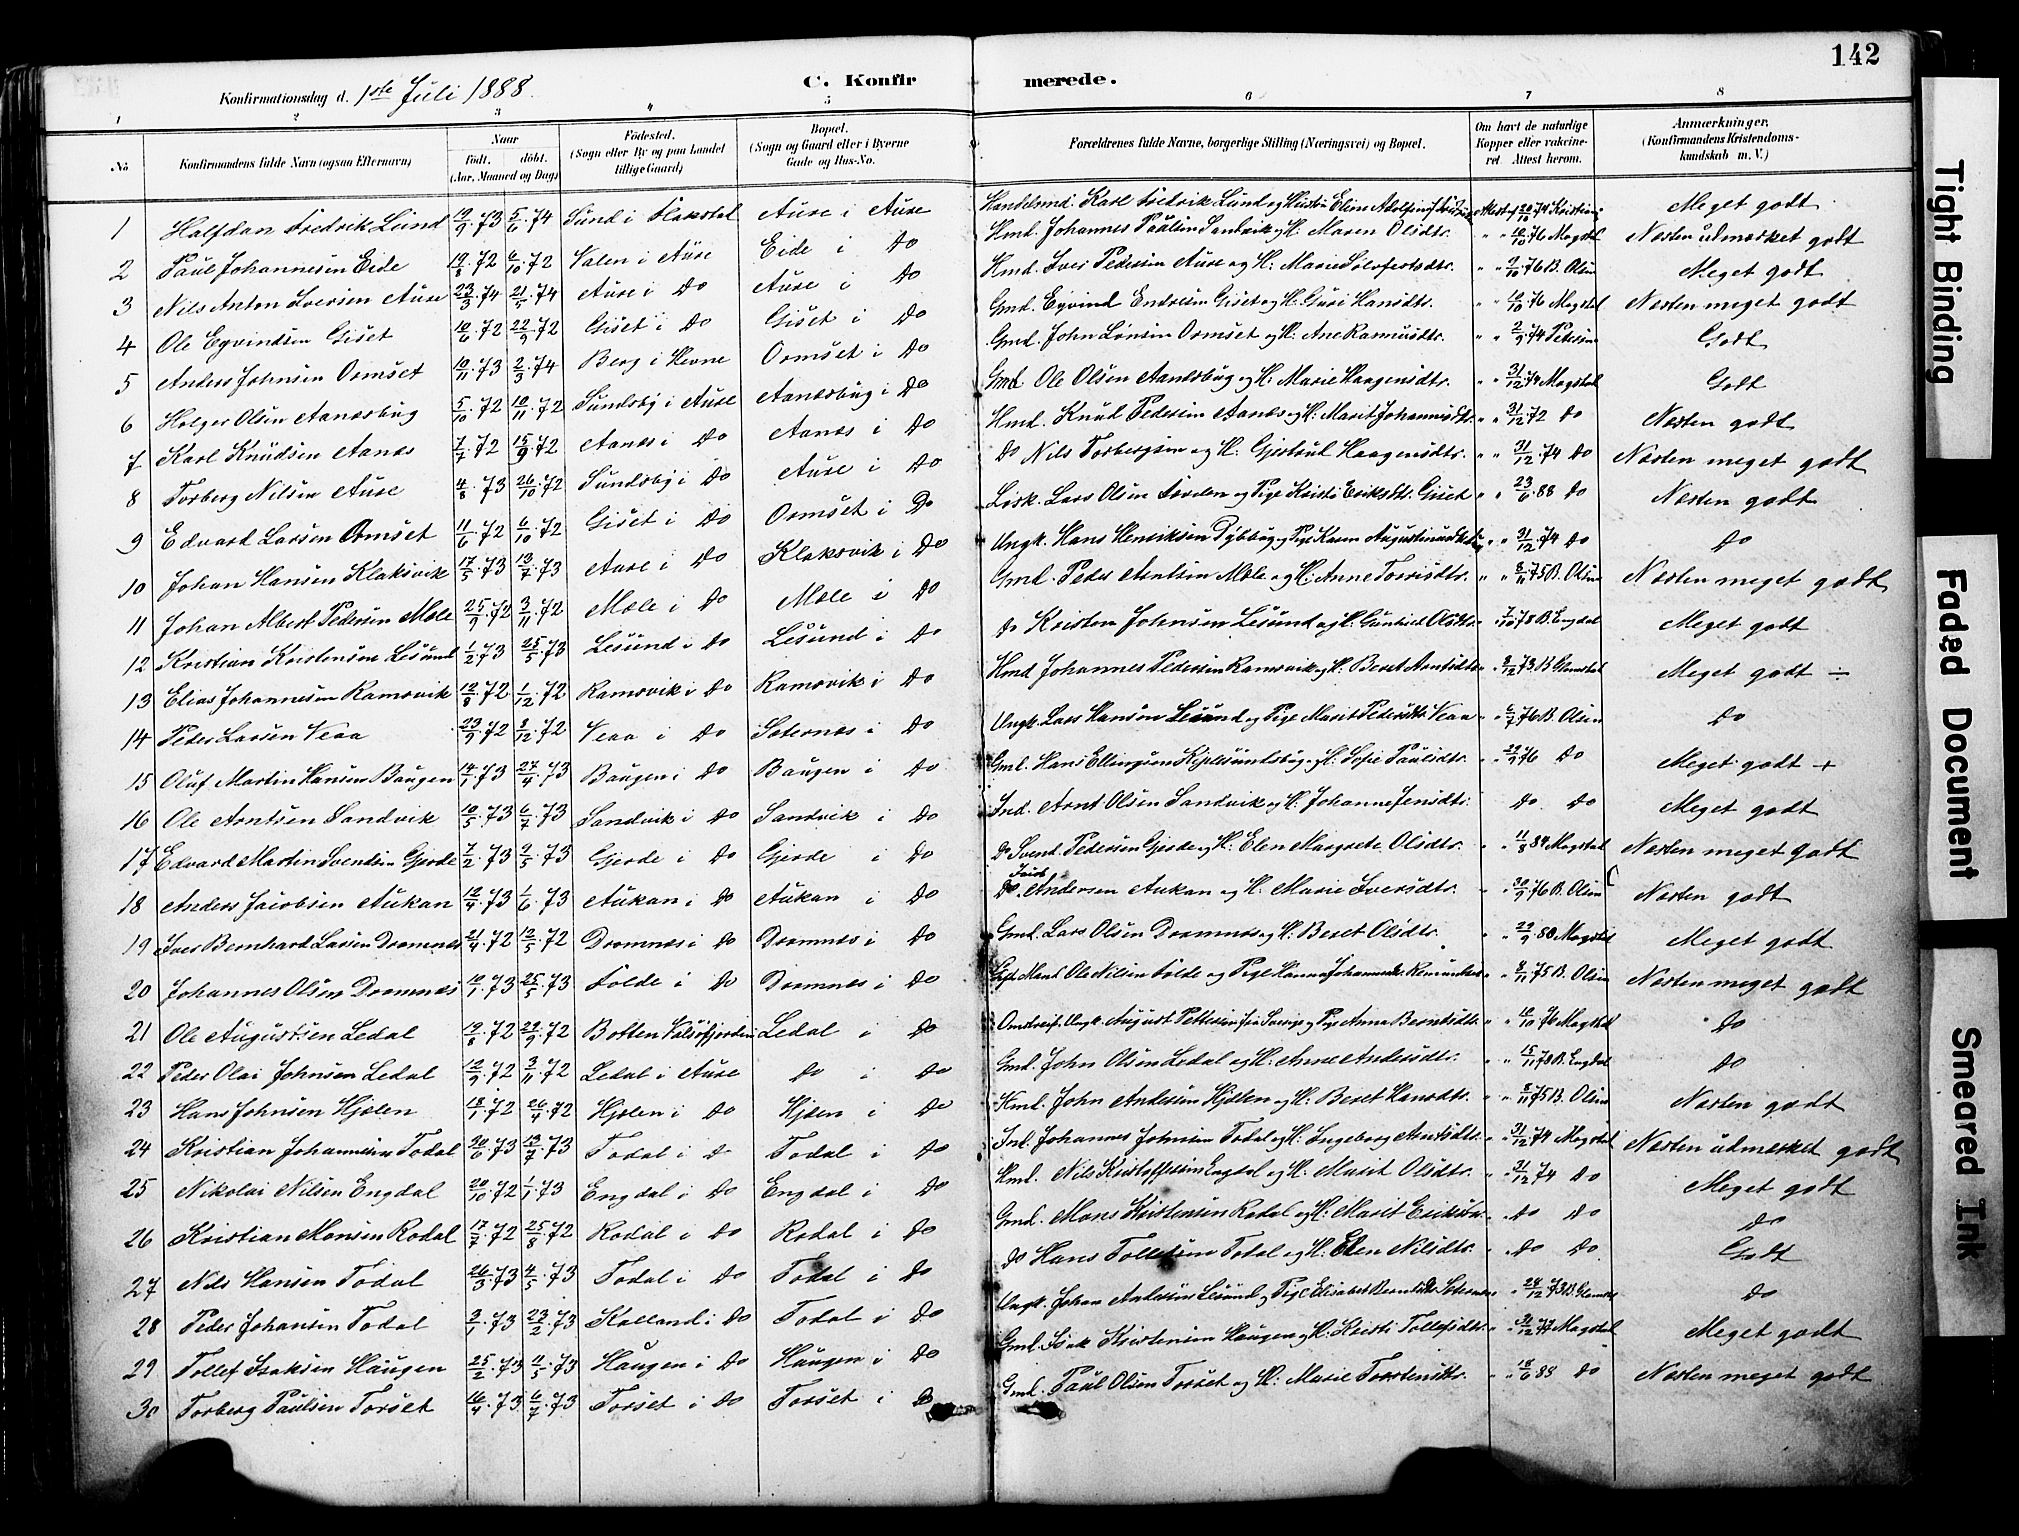 142
Konfirmationsdag d. 1ste Juli 1888.
C. Konfirmerede.
1 2 3 4 5 6 7 8
No
Konfirmandens fulde Navn (ogsaa Efternavn)
Naar
Födt. döbt.
(Aar, Maaned og Dag)
Födested.
(Sogn eller By og paa Landet tillige Gaard)
Bopæl.
(Sogn og Gaard eller i Byerne Gade og Hus-No.
Forældrenes fulde Navne, borgerlige Stilling (Næringsvei) og Bopæl.
Om havt de naturlige Kopper eller vakcineret. Attest herom.
Anmærkninger.
(Konfirmandens Kristendomskundskab m. V.)
1 Halfdan Fredrik Lund 19/9 73 5/6 74 Sund i Flakstad Aure i Aure Handelsmd. Karl Fredrik Lund og Hustru Eline Meget godt
2 Paul Johannesen Eide 19/8 72 6/10 72 Valen i Aure Eide i Do Hmd. Johannes Paulsen Sandvik og H: Maren Olsdtr. " " 10/10 76 Magstad Næsten udmærket godt
3 Nils Anton Iversen Aure 23/3 74 21/5 74 Aure i Do Aure i Do Hmd. Iver Pedersen Aure og H: Marie Sølvfestsdtr. " " 9/10 76 B. Olsen Meget godt
4 Ole Eyvindsen Giset 10/6 72 22/9 72 Giset i Do Giset i Do Gmd. Eyvind Endresen Giset og H: Guri Hansdtr. " " 10/10 76 Magstad Næsten meget godt
5 Anders Johnsen Ormset 10/11 73 2/3 74 Berg i Hevne Ormset i Do Gmd. John Lønsen Ormset og H: Ane Rasmusdtr. " " 2/9 74 Petersen Godt
6 Holger Olsen Aanæsbug 5/10 72 10/11 72 Sundsby i Aure Aanæsbug i Do Gmd. Ole Olsen Aanæsbug og H: Marie Haagensdtr. " " 31/12 74 Magstad Godt
7 Karl Knudsen Aanæs 7/7 72 15/9 72 Aanæs i Do Aanæs i Do Hmd. Knud Pedersen Aanæs og H: Marit Johannesdtr. " " 31/12 72 Do Næsten godt
8 Torberg Nilsen Aure 4/8 73 26/10 72 Sundsby i Do Aure i Do Do Nils Torbergsen og H: Gjertrud Haagensdtr. " " 31/12 74 Do Næsten meget godt
9 Edvard Larsen Ormset 11/6 72 6/10 72 Giset i Do Ormset i Do Løsk. Lars Olsen og Pige Kristi Eriksdtr. Giset " " 23/6 88 Do Næsten godt
10 Johan Hansen Klaksvik 17/5 73 13/7 73 Aure i Do Klaksvik i Do Ungk. Hans Henriksen Dybbug og Pige Karen " " 31/12 74 Do Do
11 Johan Albert Pedersen Mæle 25/9 72 3/11 72 Mæle i Do Mæle i Do Gmd. Peder Arntsen Mæle og H: Anne Torrisdtr. " " 8/11 75 B. Olsen Næsten meget godt
12 Kristian Kristensen Lesund 1/2 73 25/5 73 Lesund i Do Lesund i Do Do Kristen Johnsen Lesund og H: Gunhild Olsdtr. " 7/10 78 B. Engdal Meget godt
13 Elias Johannesen Ramsvik 12/8 72 1/12 72 Ramsvik i Do Ramsvik i Do Hmd Johannes Pedersen Ramsvik og H: Beret Arntsdtr. Meget godt ÷
14 Peder Larsen Veaa 29/9 72 8/12 72 Veaa i Do Sæternæs i Do Ungk. Lars Hansen Lesund og Pige Marit Pedersdtr. Veaa " 6/7 76 B. Olsen Do
15 Oluf Martin Hansen Baugen 14/1 73 27/4 73 Baugen i Do Baugen i Do Gmd. Hans Ellingsen og H: Sofie Paulsdtr. " 29/9 76 Do Meget godt +
16 Ole Arntsen Sandvik 10/5 73 6/7 73 Sandvik i Do Sandvik i Do Ind. Arnt Olsen Sandvik og H: Johanne Jensdtr. Do Do Meget godt
17 Edvard Martin Svendsen Gjerde 7/2 73 2/5 73 Gjerde i Do Gjerde i Do Do Svend Pedersen Gjerde og H: Elen Margrete Olsdtr. " 11/8 84 Magstad Næsten meget godt
18 Anders Jacobsen Aukan 12/4 73 1/6 73 Aukan i Do Aukan i Do Do Jacob Andersen Aukan og H: Marie Iversdtr. " 30/9 76 B. Olsen Næsten godt
19 Iver Bernhard Larsen Dromnes 21/4 72 12/5 72 Dromnes i Do Dromnes i Do Gmd. Lars Olsen Dromnes og H: Beret Olsdtr. " 22/9 80 Magstad Meget godt
20 Johannes Olsen Dromnes 10/1 73 25/5 73 Folde i Do Dromnes i Do Gift Mand Ole Nilsen Folde og Pige Hanna " 8/11 75 B. Olsen Næsten meget godt
21 Ole Augustsen Ledal 19/8 72 29/9 72 Botten Valsøfjorden Ledal i Do Omstreif. Ungk. August Pettersen fra Sverige og Pige Anna Berntsdtr. " 10/10 76 Magstad Do
22 Peder Olai Johnsen Ledal 12/9 72 3/11 72 Ledal i Aure Do i Do Gmd. John Olsen Ledal og H: Anne Andersdtr. " 15/11 78 B. Engdal Do
23 Hans Johnsen Hjælen 18/1 72 26/4 72 Hjælen i Do Hjælen i Do Hmd. John Andersen Hjælen og H: Beret Hansdtr. " 8/11 75 B. Olsen Næsten godt
24 Kristian Johannesen Todal 20/6 73 13/7 73 Todal i Do Todal i Do Ind. Johannes Johnsen Todal og H: Ingeborg Arntsdtr. " 31/12 74 Magstad Næsten udmærket godt
25 Nikolai Nilsen Engdal 20/10 72 1/1 73 Engdal i Do Engdal i Do Hmd. Nils Kristoffersen Engdal og H: Marit Olsdtr. " 31/12 74 Do Meget godt
26 Kristian Monsen Rodal 17/7 72 25/8 72 Rodal i Do Rodal i Do Gmd. Mons Kristensen Rodal og H: Marit Eriksdtr. " Do Do Do
27 Nils Hansen Todal 26/3 73 4/5 73 Todal i Do Todal i Do Do Hans Tollefsen Todal og H: Elen Nilsdtr. " Do Do Godt
28 Peder Johansen Todal 3/1 73 23/2 73 Kalland i Do Todal i Do Ungk. Johan Andersen Lesund og Pige Elisabet Do
29 Tollef Isaksen Haugen 25/2 73 4/5 73 Haugen i Do Haugen i Do Gmd. Isak Kristensen Haugen og H: Kristi Tollefsdtr. " 31/12 74 Magstad Meget godt
30 Torberg Paulsen Torset 16/4 73 6/7 73 Torset i Do Torset i Do Gmd. Paul Olsen Torset og H: Marie Torstensdtr. " " 18/6 88 Do Næsten meget godt
Tight Binding
Faded Document
Smeared Ink